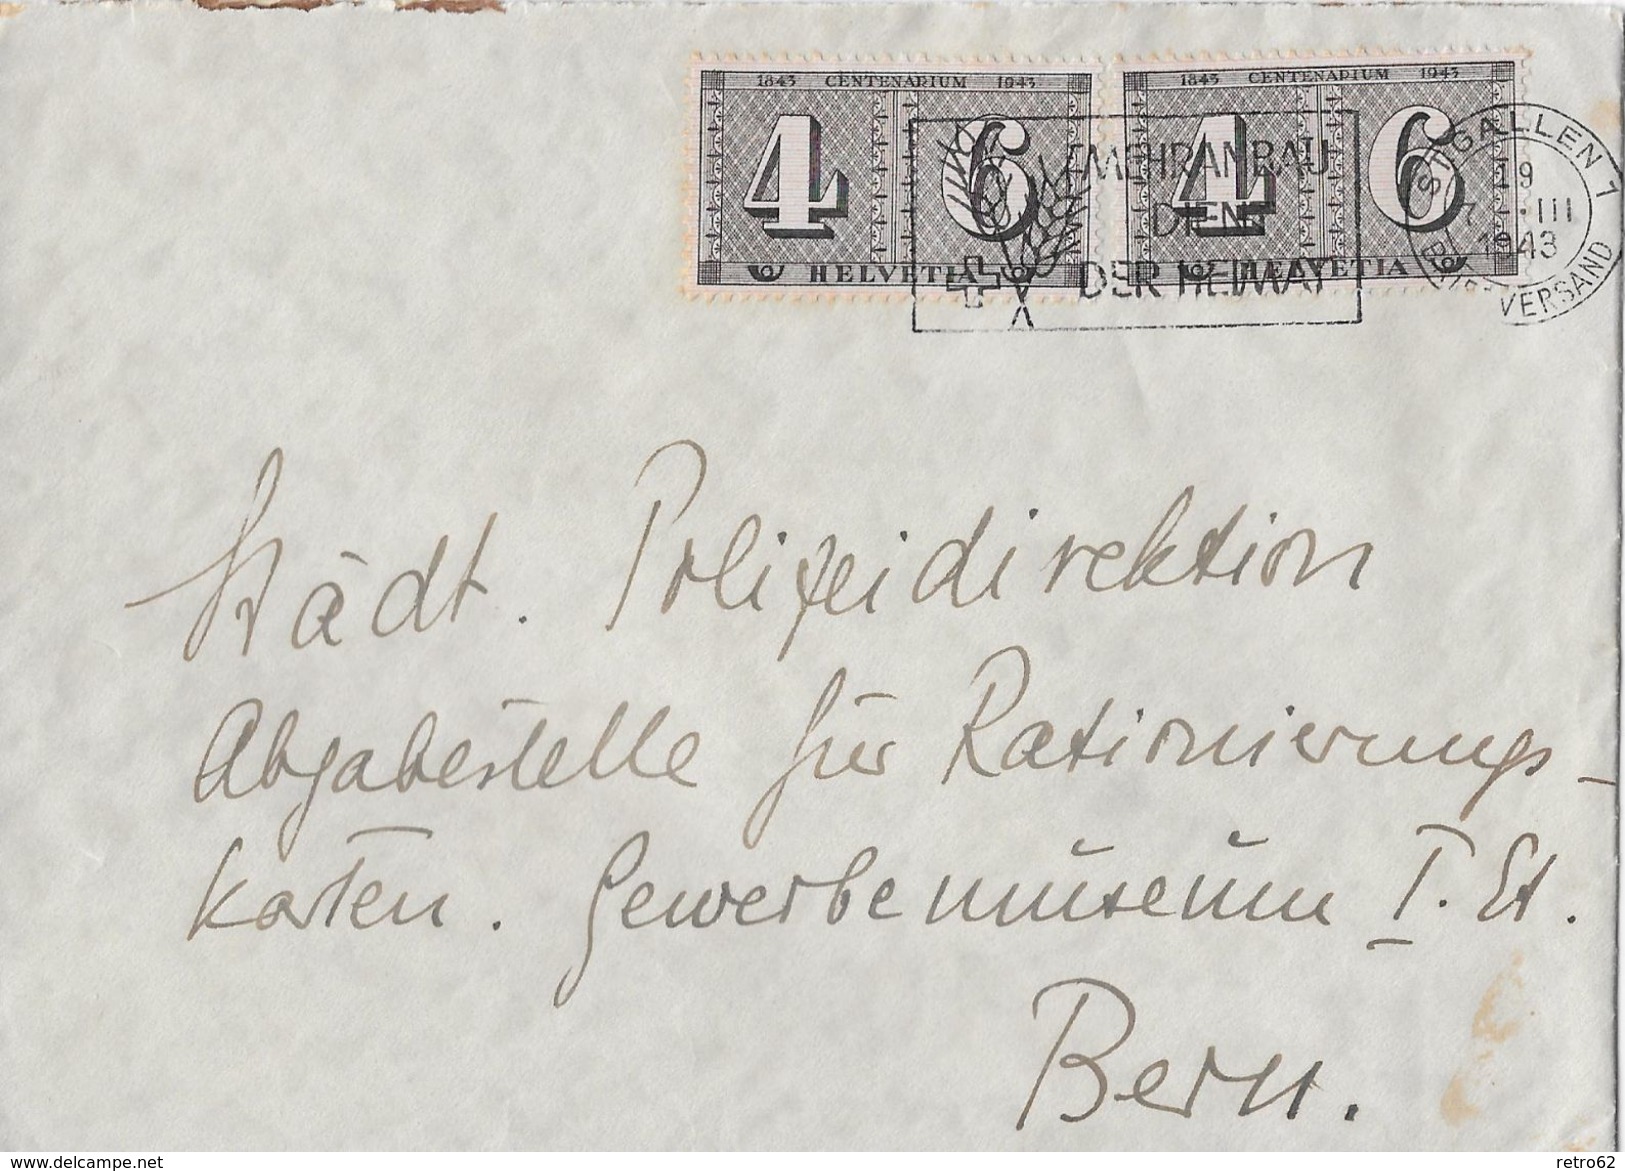 1843 CENTENARIUM 1943
4 6
HELVETIA
1843 CENTENARIUM 1943
4 6
HELVETIA
MEHRANBAU
DIENT
DER HEIMAT
ST. GALLEN 1
19
7. III
1943
BRIEFVERSAND
Städt. Polizeidirektion
Abgabestelle für Rationierungs-
karten. Gewerbemuseum I. St.
Bern.
www.delcampe.net
retro62